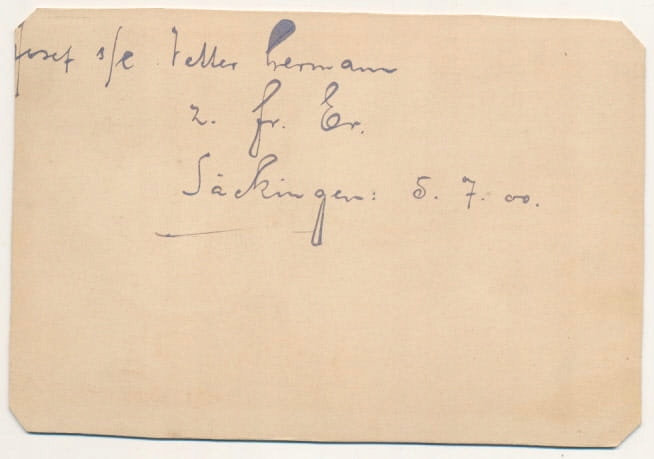 Josef s/e Vetter Hermann
z. fr. Er.
Säckingen: 5. 7. 00.